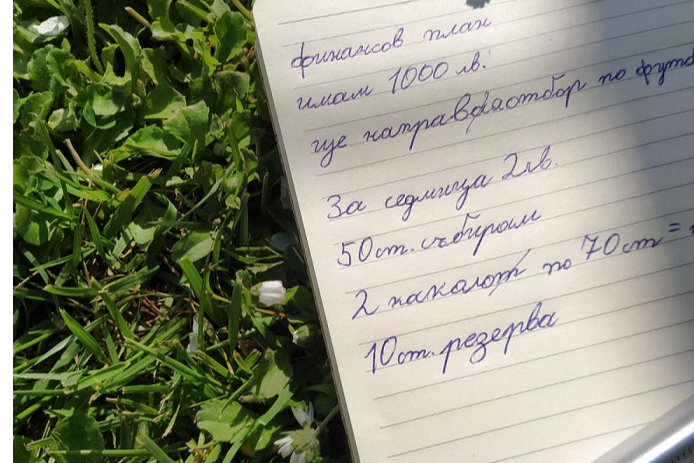 финансов план
имам 1000 лв.
ще направя отбор по футб
За седмица 2лв.
50ст. събирам
2 какалот по 70ст =
10ст. резерва